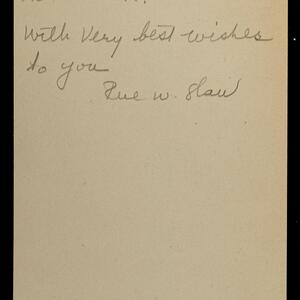 With Very best wishes
to you
Rue W. Shaw